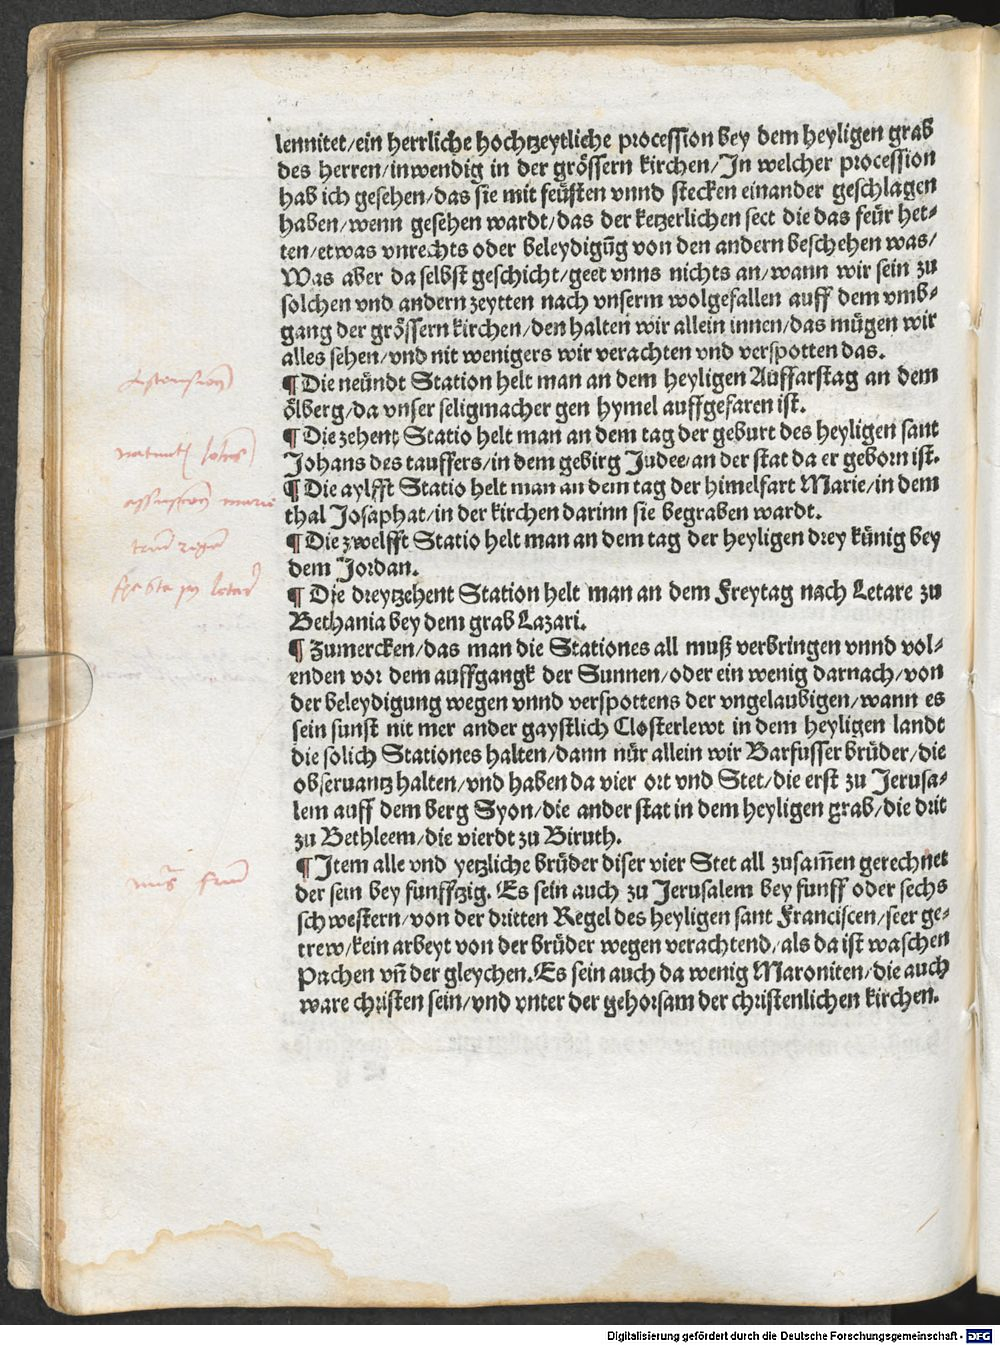 lennitet/ein herrliche hochtzeytliche procession bey dem heyligen grab
des herren/inwendig in der grössern kirchen/In welcher procession
hab ich gesehen/das sie mit feüsten vnnd stecken einander geschlagen
haben/wenn gesehen wardt/das der ketzerlichen sect die das feür het-
ten/etwas vnrechts oder beleydigūg von den andern beschehen was/
Was aber da selbst geschicht/geet vnns nichts an/wann wir sein zu
solchen vnd andern zeytten nach vnserm wolgefallen auff dem vmb-
gang der grössern kirchen/den halten wir allein innen/das mügen wir
alles sehen/vnd nit wenigers wir verachten vnd verspotten das.
¶ Die neündt Station helt man an dem heyligen Auffarstag an dem
ölberg/da vnser seligmacher gen hymel auffgefaren ist.
¶ Die zehent Statio helt man an dem tag der geburt des heyligen sant
Johans des tauffers/in dem gebirg Judee/an der stat da er geborn ist.
¶ Die aylfft Statio helt man an dem tag der himelfart Marie/in dem
thal Josaphat/in der kirchen darinn sie begraben wardt.
¶ Die zwelfft Statio helt man an dem tag der heyligen drey künig bey
dem Jordan.
¶ Die dreytzehent Station helt man an dem Freytag nach Letare zu
Bethania bey dem grab Lazari.
¶ Zumercken/das man die Stationes all muß verbringen vnnd vol-
enden vor dem auffgangk der Sunnen/oder ein wenig darnach/von
der beleydigung wegen vnnd verspottens der vngelaubigen/wann es
sein sunst nit mer ander gaystlich Closterlewt in dem heyligen landt
die solich Stationes halten/dann nür allein wir Barfusser brüder/die
obseruantz halten/vnd haben da vier ort vnd Stet/die erst zu Jerusa-
lem auff dem berg Syon/die ander stat in dem heyligen grab/die drit
zu Bethleem/die vierdt zu Biruth.
¶ Item alle vnd yetzliche brüder diser vier Stet all zusam̄en gerechnet
der sein bey funffzig. Es sein auch zu Jerusalem bey funff oder sechs
schwestern/von der dritten Regel des heyligen sant Franciscen/seer ge-
trew/kein arbeyt von der brüder wegen verachtend/als da ist waschen
Pachen vn̄ der gleychen. Es sein auch da wenig Maroniten/die auch
ware christen sein/vnd vnter der gehorsam der christenlichen kirchen.
Digitalisierung gefördert durch die Deutsche Forschungsgemeinschaft - DFG